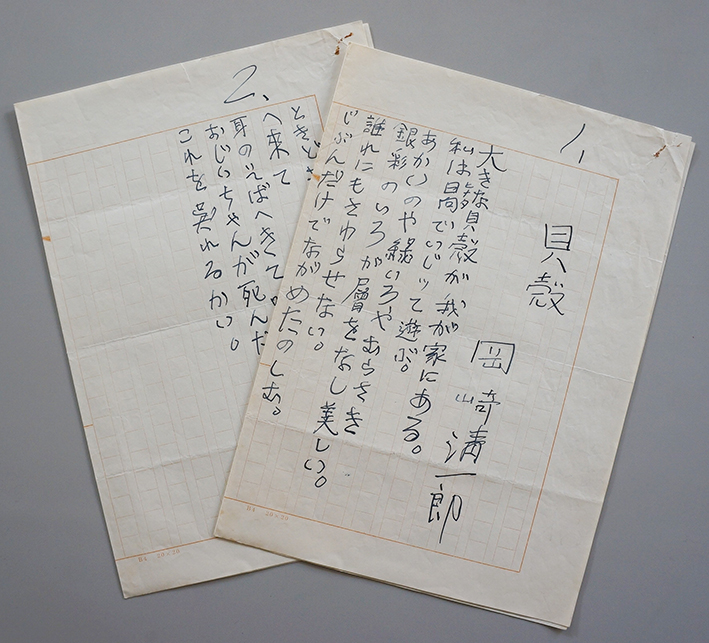 1、
貝殻
岡崎清一郎
大きな貝殻が我が家にある。
私はでいじって遊ぶ。
あかいのや緑いろやむらさき
銀彩のいろが層をなし美しい。
誰れにもさわらせない。
じぶんだけでながめたのしむ。
B4 20×20
2、
ときどき
へ来て
耳のそばへきて
おじいちゃんが死んだ
これを呉れるかい。
B4 20×20